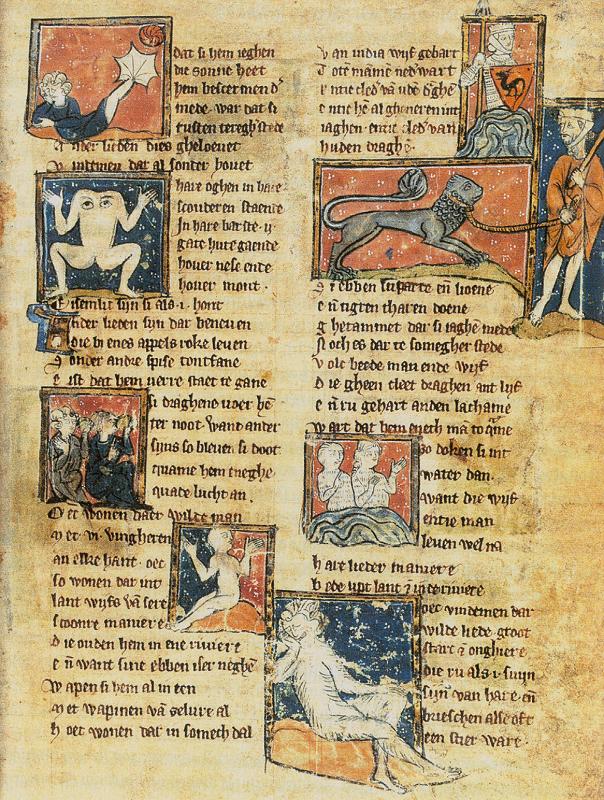 dat si hem ieghen
die sonne heet
hem bescermen d'
mede. war dat si
rusten teregh' stede
A nder lieden dies gheloeuet
V intmen dar al sonder houet
hare oghen in hare
scouderen staende
In hare barste .ij.
gate hute gaende
houer nese ende
houer mont.
E iselic sijn si als .i. hont
A nder lieden sijn dar beneuen
die bi enes appels roke leuen
S onder andre spise tontfane
E ist dat hem verre staet te gane
si draghene voer hē
ter noot. want ander
sijns so bleuen si doot
quame hem eneghe
quade lucht an.
O ec wonen daer wilde man
M et .vi. vingheren
an elke hant. oec
so wonen dar int
lant wijfs vā sere
scoonre maniere
D ie onden hem in ene riuiere
E n̄ want sine ebben iser neghē
W apen si hem al in een
M et wapinen vā selure al
h oec wonen dar in somech dal
V an india wijf gebart
T ote
iaghen
huden draghē.
S i ebben luparte en̄ lioene
E n̄ tigren
g hetammet dar si iaghē mede
N och es dar te someger stede
V olc beede man ende wijf
D ie gheen cleet draghen ant lijf
E n̄ ru gehart anden lachame
W art dat hem enech mā
zo doken si int
water dan.
want die wijf
entie man
leuen wel na
h are lieder maniere
B ede vpt lant ꝫ in de riuiere
oec vindemen dar
wilde liede. groot
starc ꝫ onghiere
die ru als .i. suijn
sijn van hare. en̄
brieschen alse oft
een stier ware.